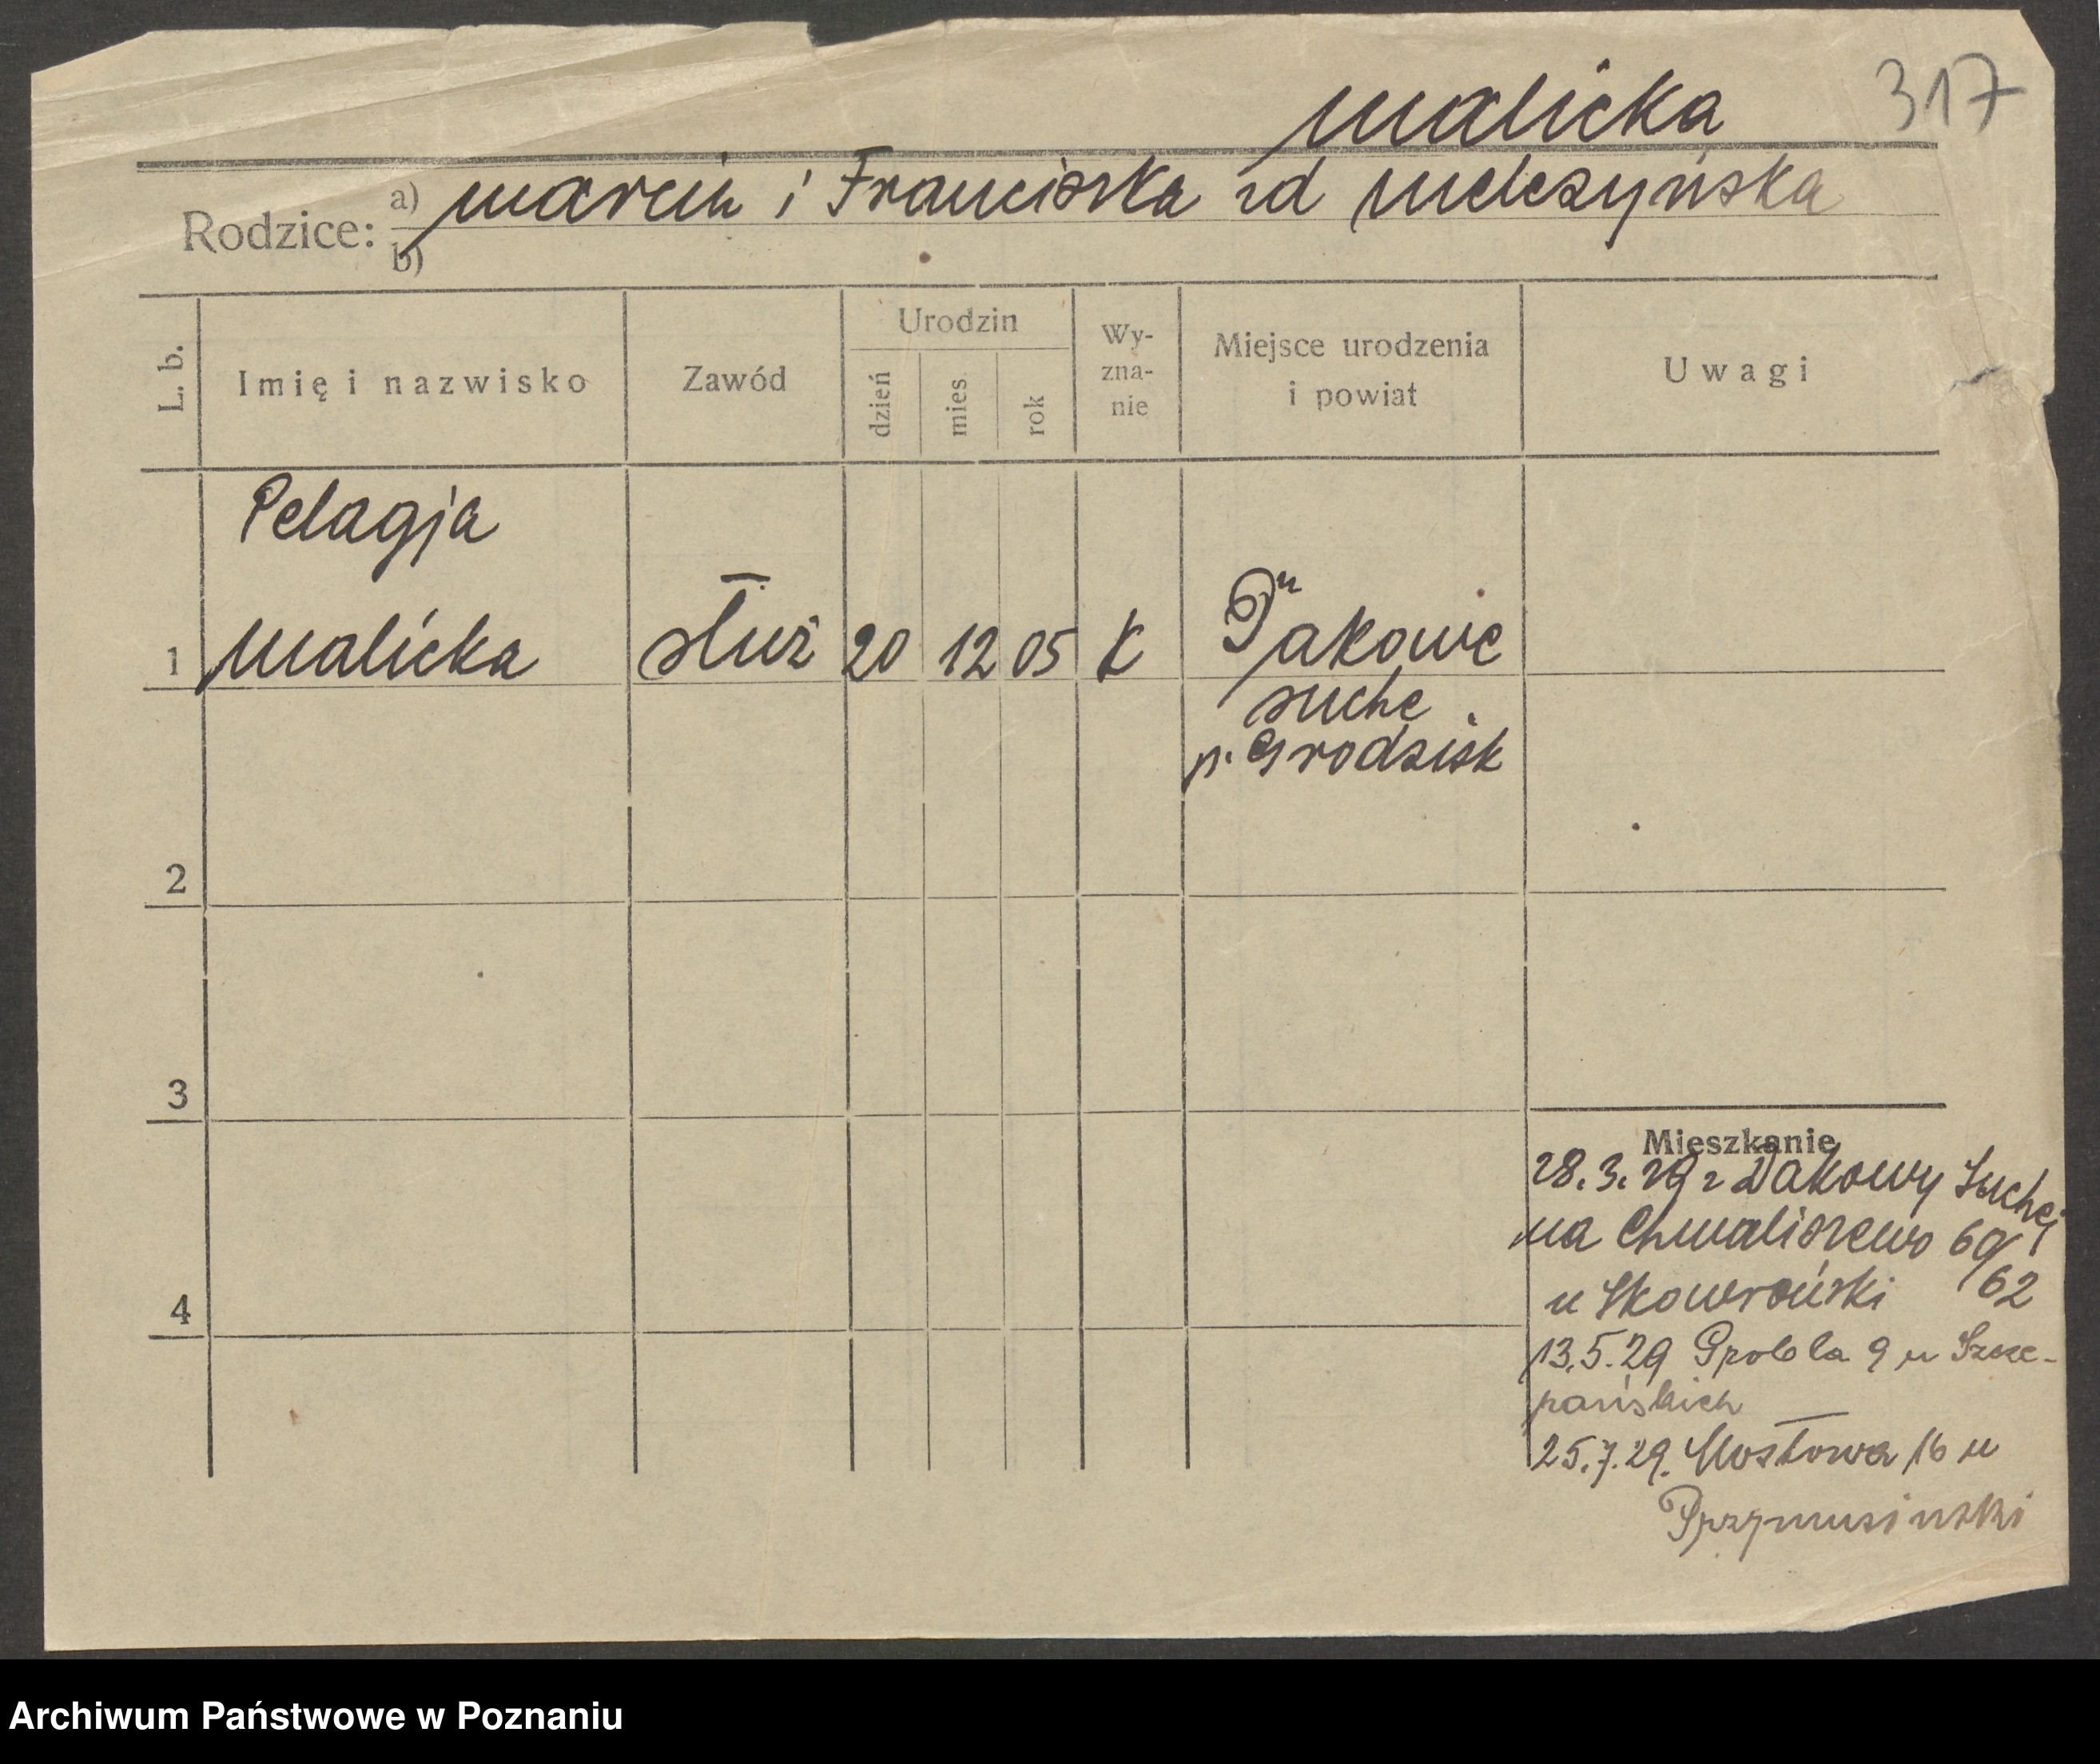 317
Malicka
Rodzice:
a) Marcin i Franciszka zd Melczyńska
b)
L. b.
Imię i nazwisko
Zawód
Urodzin
dzień
mies.
rok
Wy-
zna-
nie
Miejsce urodzenia
i powiat
Uwagi
Pelagja
1 Malicka służ 20 12 05 K Dakowe
suche
p. Grodzisk
2
3
4
Mieszkanie
28.3.29 z Dakowy Suchej
na Chwaliszewo 60/
62
u Skowroński
13.5.29 Grobla 9 u Szcze-
pańskich
25.7.29. Mostowa 16 u
Przymusiński
Archiwum Państwowe w Poznaniu